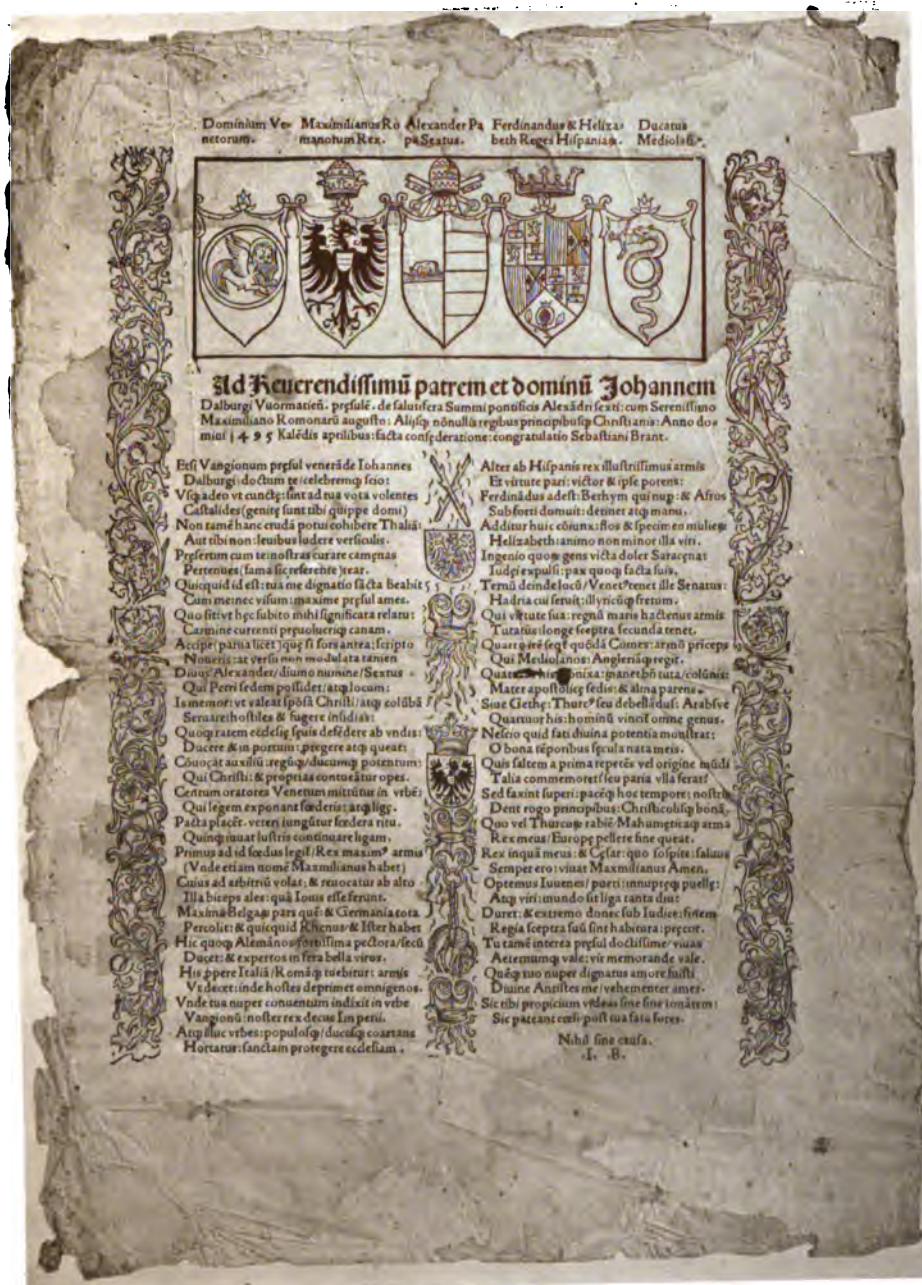 Dominium Ve= Maximilianus Ro Alexander Pa Ferdinandus & Heliza= Ducatus
netorum. manorum Rex. pa Sextus. beth Reges Hispaniaꝝ. Mediolañ.
Ad Reuerendissimū patrem et dominū Johannem
Dalburgi Vuormatień. pręsulē. de salutifera Summi pontificis Alexādri sexti: cum Serenissimo
Maximiliano Romonarū augusto: Alijsqꝫ nōnullis regibus principibusqꝫ Christianis: Anno do=
mini 1495 Kalēdis aprilibus: facta confęderatione: congratulatio Sebastiani Brant.
Etsi Vangionum pręsul venerāde Iohannes
Dalburgi: doctum te: celebremqꝫ scio:
Vsqꝫ adeo vt cunctę: sint ad tua vota volentes
Castalides (genitę sunt tibi quippe domi)
Non tamē hanc crudā potui cohibere Thaliā:
Aut tibi non: leuibus ludere versiculis.
Pręsertim cum te: nostras curare camęnas
Pertenues (fama sic referente) rear.
Quicquid id est: tua me dignatio sācta beabit
Cum me: nec visum: maxime pręsul ames.
Quo fit: vt hęc subito mihi significata relatu:
Carmine currenti pręuolucriqꝫ canam.
Accipe (paria licet) quę si fors antea: scripto
Noueris: at versu non modulata tamen
Diuus Alexander / diuino numine / Sextus
Qui Petri sedem possidet: atqꝫ locum:
Is memor: vt valeat spōsā Christi / atqꝫ colūbā
Seruare: hostiles & fugere insidias:
Quoqꝫ ratem ecclesię sęuis defēdere ab vndis:
Ducere & in portum: ꝓtegere atqꝫ queat:
Cōuocat auxiliū: regūqꝫ / ducumqꝫ potentum:
Qui Christi: & proprias contueātur opes.
Centum oratores Venetum mittūtur in vrbē:
Qui legem exponant fœderis: atqꝫ ligę.
Pacta placēt. veteri iungūtur fœdera ritu.
Quinqꝫ iuuat lustris continuare ligam.
Primus ad id fœdus legit / Rex maximꝰ armis
(Vnde etiam nomē Maxmilianus habet)
Cuius ad arbitriū volat: & reuocatur ab alto
Illa biceps ales: quā Iouis esse ferunt.
Maxima Belgaꝝ pars quē: & Germania tota
Percolit: & quicquid Rhenus & Ister habet
Hic quoqꝫ Alemānos fortissima pectora / secū
Ducet: & expertos in fera bella viros.
His ꝓpere Italiā / Romāqꝫ tuebitur: armis
Vt decet: inde hostes deprimet omnigenos.
Vnde tua nuper conuentum indixit in vrbe
Vangionū: noster rex decus Imperii.
Atqꝫ illuc vrbes: populosqꝫ / ducesqꝫ coartans
Hortatur: sanctam protegere ecclesiam.
Alter ab Hispanis rex illustrissimus armis
Et virtute pari: victor & ipse potens:
Ferdinādus adest: Bethym qui nup: & Afros
Sub forti domuit: detinet atqꝫ manu.
Additur huic cōiunx: flos & specimen mulieꝝ
Helizabeth: animo non minor illa viri.
Ingenio quoꝝ gens victa dolet Saracena:
Iudęi expulsi: pax quoqꝫ facta suis.
Ternū deinde locū / Venetꝰ tenet ille Senatus:
Hadria cui seruit: illyricūqꝫ fretum.
Qui virtute sua: regnū maris hactenus armis
Tutatus: longe sceptra secunda tenet.
Quartꝰ quōdā Comes: armō prīceps
Qui Mediolanos: Angleriāqꝫ regit.
his onixa: manet bń tuta / colūnis:
Mater apostolicę sedis: & alma parens.
Siue Gethę: Thurcꝰ seu debellādus: Arabsve
Quatuor his: hominū vincīt omne genus.
Nescio quid fati diuina potentia monstrat:
O bona tēporibus sęcula nata meis.
Quis saltem a prima repetēs vel origine mūdi
Talia commemoret / seu paria vlla ferat?
Sed faxint superi: pacēqꝫ hoc tempore: nostris
Dent rogo principibus: Christicolisqꝫ bonā.
Quo vel Thurcoꝝ rabiē Mahumeticaqꝫ arma
Rex meus / Europę pellere fine queat.
Rex inquā meus: & Cęsar: quo sospite: saluus
Semper ero: viuat Maxmilianus Amen.
Optemus Iuuenes / pueri: innuptęqꝫ puellę:
Atqꝫ viri: mundo sit liga tanta diu:
Duret: & extremo donec sub Iudice: finem
Regia sceptra suū sint habitura: pręcor.
Tu tamē interea pręsul doctissime / viuas
Aeternumqꝫ vale: vir memorande vale.
Quēqꝫ tuo nuper dignatus amore fuisti
Diuine Antistes me / vehementer amer.
Sic tibi propicium videas sine fine tonātem:
Sic pateant cœli post tua fata fores.
Nihil sine causa.
.I. .B.